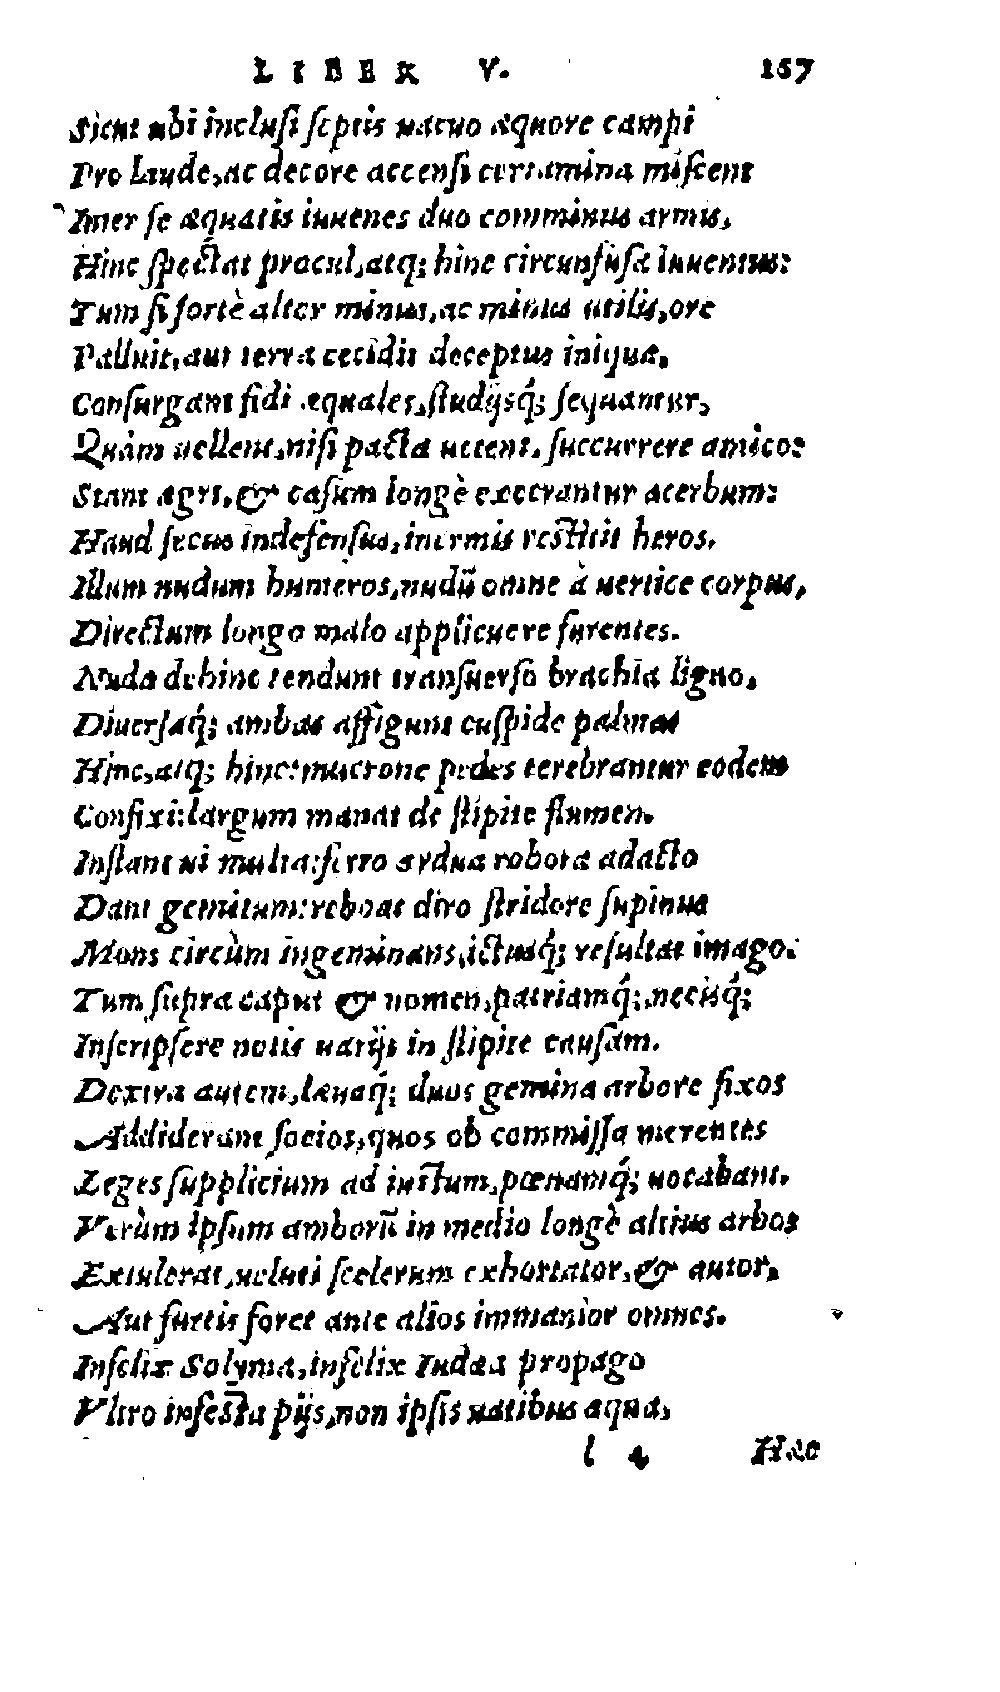 LIBER V. 167
Sicut ubi inclusi septis uacuo æquore campi
Pro laude, ac decore accensi certamina miscent
Inter se æquatis iuuenes duo comminus armis,
Hinc spectat procul, atq́; hinc circunfusa Iuuentus:
Tum si fortè alter minus, ac minus utilis, ore
Palluit, aut terra cecidit deceptus iniqua,
Consurgant fidi æquales, studijsq́; sequantur,
Quàm uellent, nisi pacta uetent, succurrere amico:
Stant ægri, & casum longè execrantur acerbum:
Haud secus indefensus, inermis restitit heros,
Illum nudum humeros, nudū omne à uertice corpus,
Directum longo malo applicuere furentes.
Nuda dehinc tendunt transuerso brachia ligno,
Diuersaq́; ambas affigunt cuspide palmas
Hinc, atq; hinc: mucrone pedes terebrantur eodem
Confixi: largum manat de stipite flumen.
Instant ui multa: ferro ardua robora adacto
Dant gemitum: reboat diro stridore supinus
Mons circùm ingeminans, ictusq́; resultat imago.
Tum supra caput & nomen, patriamq́;, necisq́;
Inscripsere notis uarijs in stipite causam.
Dextra autem, læuaq́; duos gemina arbore fixos
Addiderant socios, quos ob commissa merentes
Leges supplicium ad iustum, pœnamq́; uocabant.
Verùm ipsum amborū in medio longè altius arbos
Extulerat, ueluti scelerum exhortator, & autor,
Aut furtis foret ante alios immanior omnes.
Infelix Solyma, infelix Iudæa propago
Vltro infesta pijs, non ipsis uatibus æqua,
l 4 Hæc